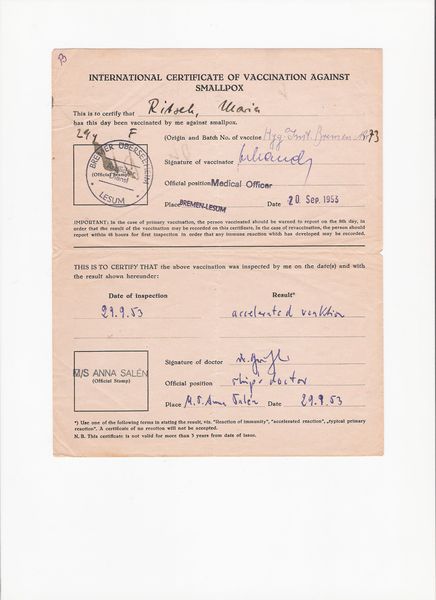 INTERNATIONAL CERTIFICATE OF VACCINATION AGAINST
SMALLPOX
This is to certify that Ritsch, Maria
has this day been vaccinated by me against smallpox.
29y F
(Origin and Batch No. of vaccine Hyg. Inst. Bremen Nr 73
BREMER ÜBERSEEHEIM
(Official Stamp)
LESUM
Signature of vaccinator
Official position Medical Officer
Place BREMEN-LESUM Date 20. Sep. 1953
IMPORTANT: In the case of primary vaccination, the person vaccinated should be warned to report on the 8th day, in
order that the result of the vaccination may be recorded on this certificate. In the case of revaccination, the person should
report within 48 hours for first inspection in order that any immune reaction which has developed may be recorded.
THIS IS TO CERTIFY THAT the above vaccination was inspected by me on the date(s) and with
the result shown hereunder:
Date of inspection Result*
29.9.53 accelerated reaktion
M/S ANNA SALÉN
(Official Stamp)
Signature of doctor
Official position ships doctor
Place M.S. Anna Salén Date 29.9.53
*) Use one of the following terms in stating the result, viz. "Reaction of immunity", "accelerated reaction", „typical primary
reaction". A certificate of no reaction will not be accepted.
N. B. This certificate is not valid for more than 3 years from date of issue.